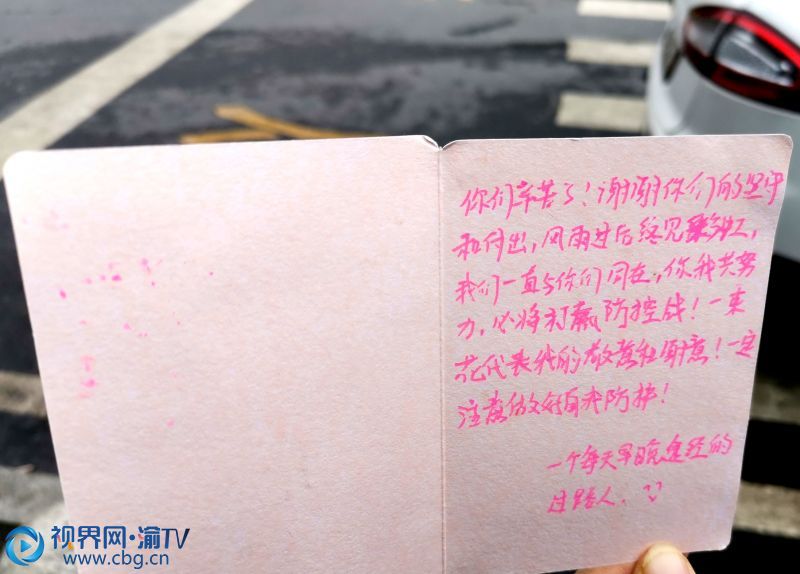 你们辛苦了！谢谢你们的坚守
和付出，风雨过后终见彩虹，
我们一直与你们同在，你我共努
力，必将打赢防控战！一束
花代表我的敬意和谢意！一定
注意做好自我防护！
一个每天早晚途经的
过路人.
视界网·渝TV
www.cbg.cn